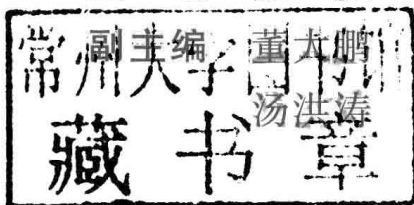 副主编 董大鹏
汤洪涛
常州大学图书馆
藏书章